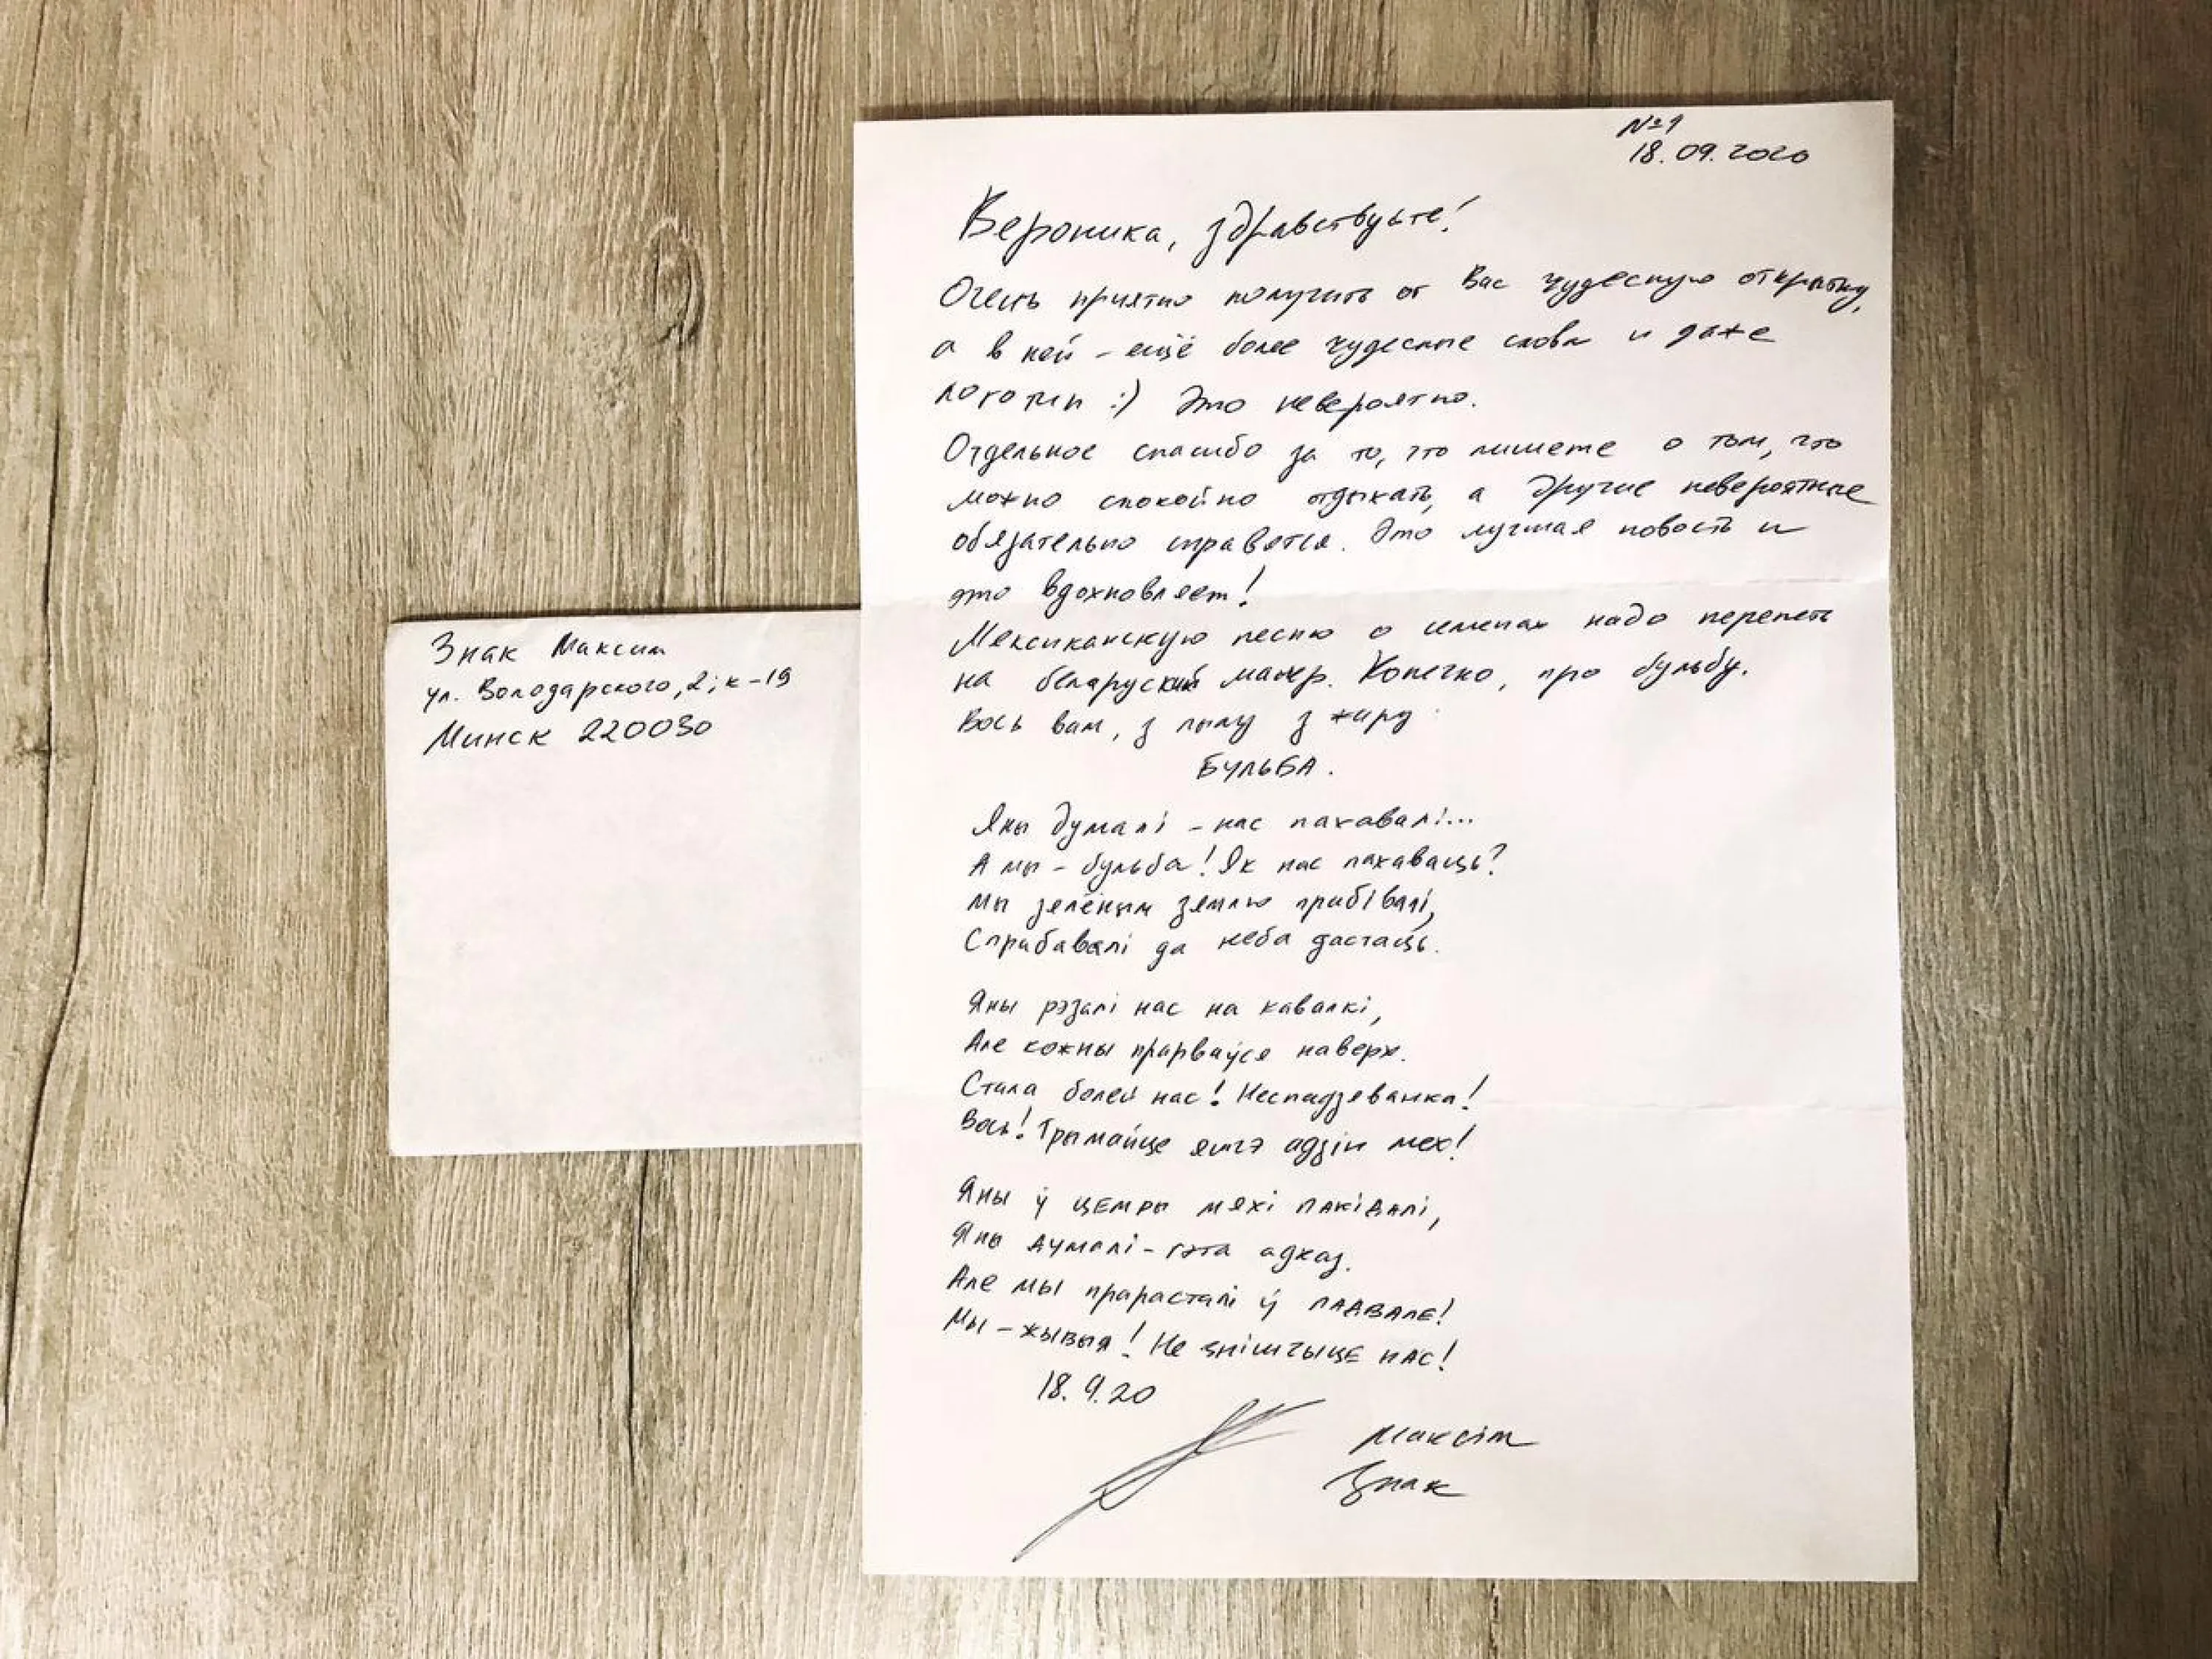 Знак Максим
ул. Володарского, 2; к-19
Минск 220030
№1
18.09.2020
Вероника, здравствуйте!
Очень приятно получить от Вас чудесную открытку,
а в ней - ещё более чудесные слова и даже
логотип :) Это невероятно.
Отдельное спасибо за то, что пишете о том, что
можно спокойно отдыхать, а другие невероятные
обязательно справятся. Это лучшая новость и
это вдохновляет!
Мексиканскую песню о семенах надо перепеть
на беларуский манер. Конечно, про бульбу.
Вось вам, з пылу з жару
БУЛЬБА.
Яны думалі - нас пахавалі...
А мы - бульба! Як нас пахаваць?
Мы зелёным зямлю прабівалі,
Спрабавалі да неба дастаць.
Яны рэзалі нас на кавалкі,
Але кожны прарваўся наверх.
Стала болей нас! Неспадзеванка!
Вось! Трымайце яшчэ адзін мех!
Яны ў цемры мяхі пакідалі,
Яны думалі - гэта адказ.
Але мы прарасталі ў падвале!
Мы - жывыя! Не знішчыце нас!
18.9.20
Максім
Знак